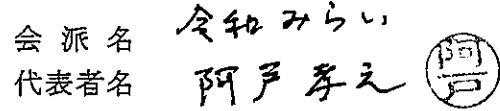 会派名 令和みらい
代表者名 阿戸孝之 阿戸